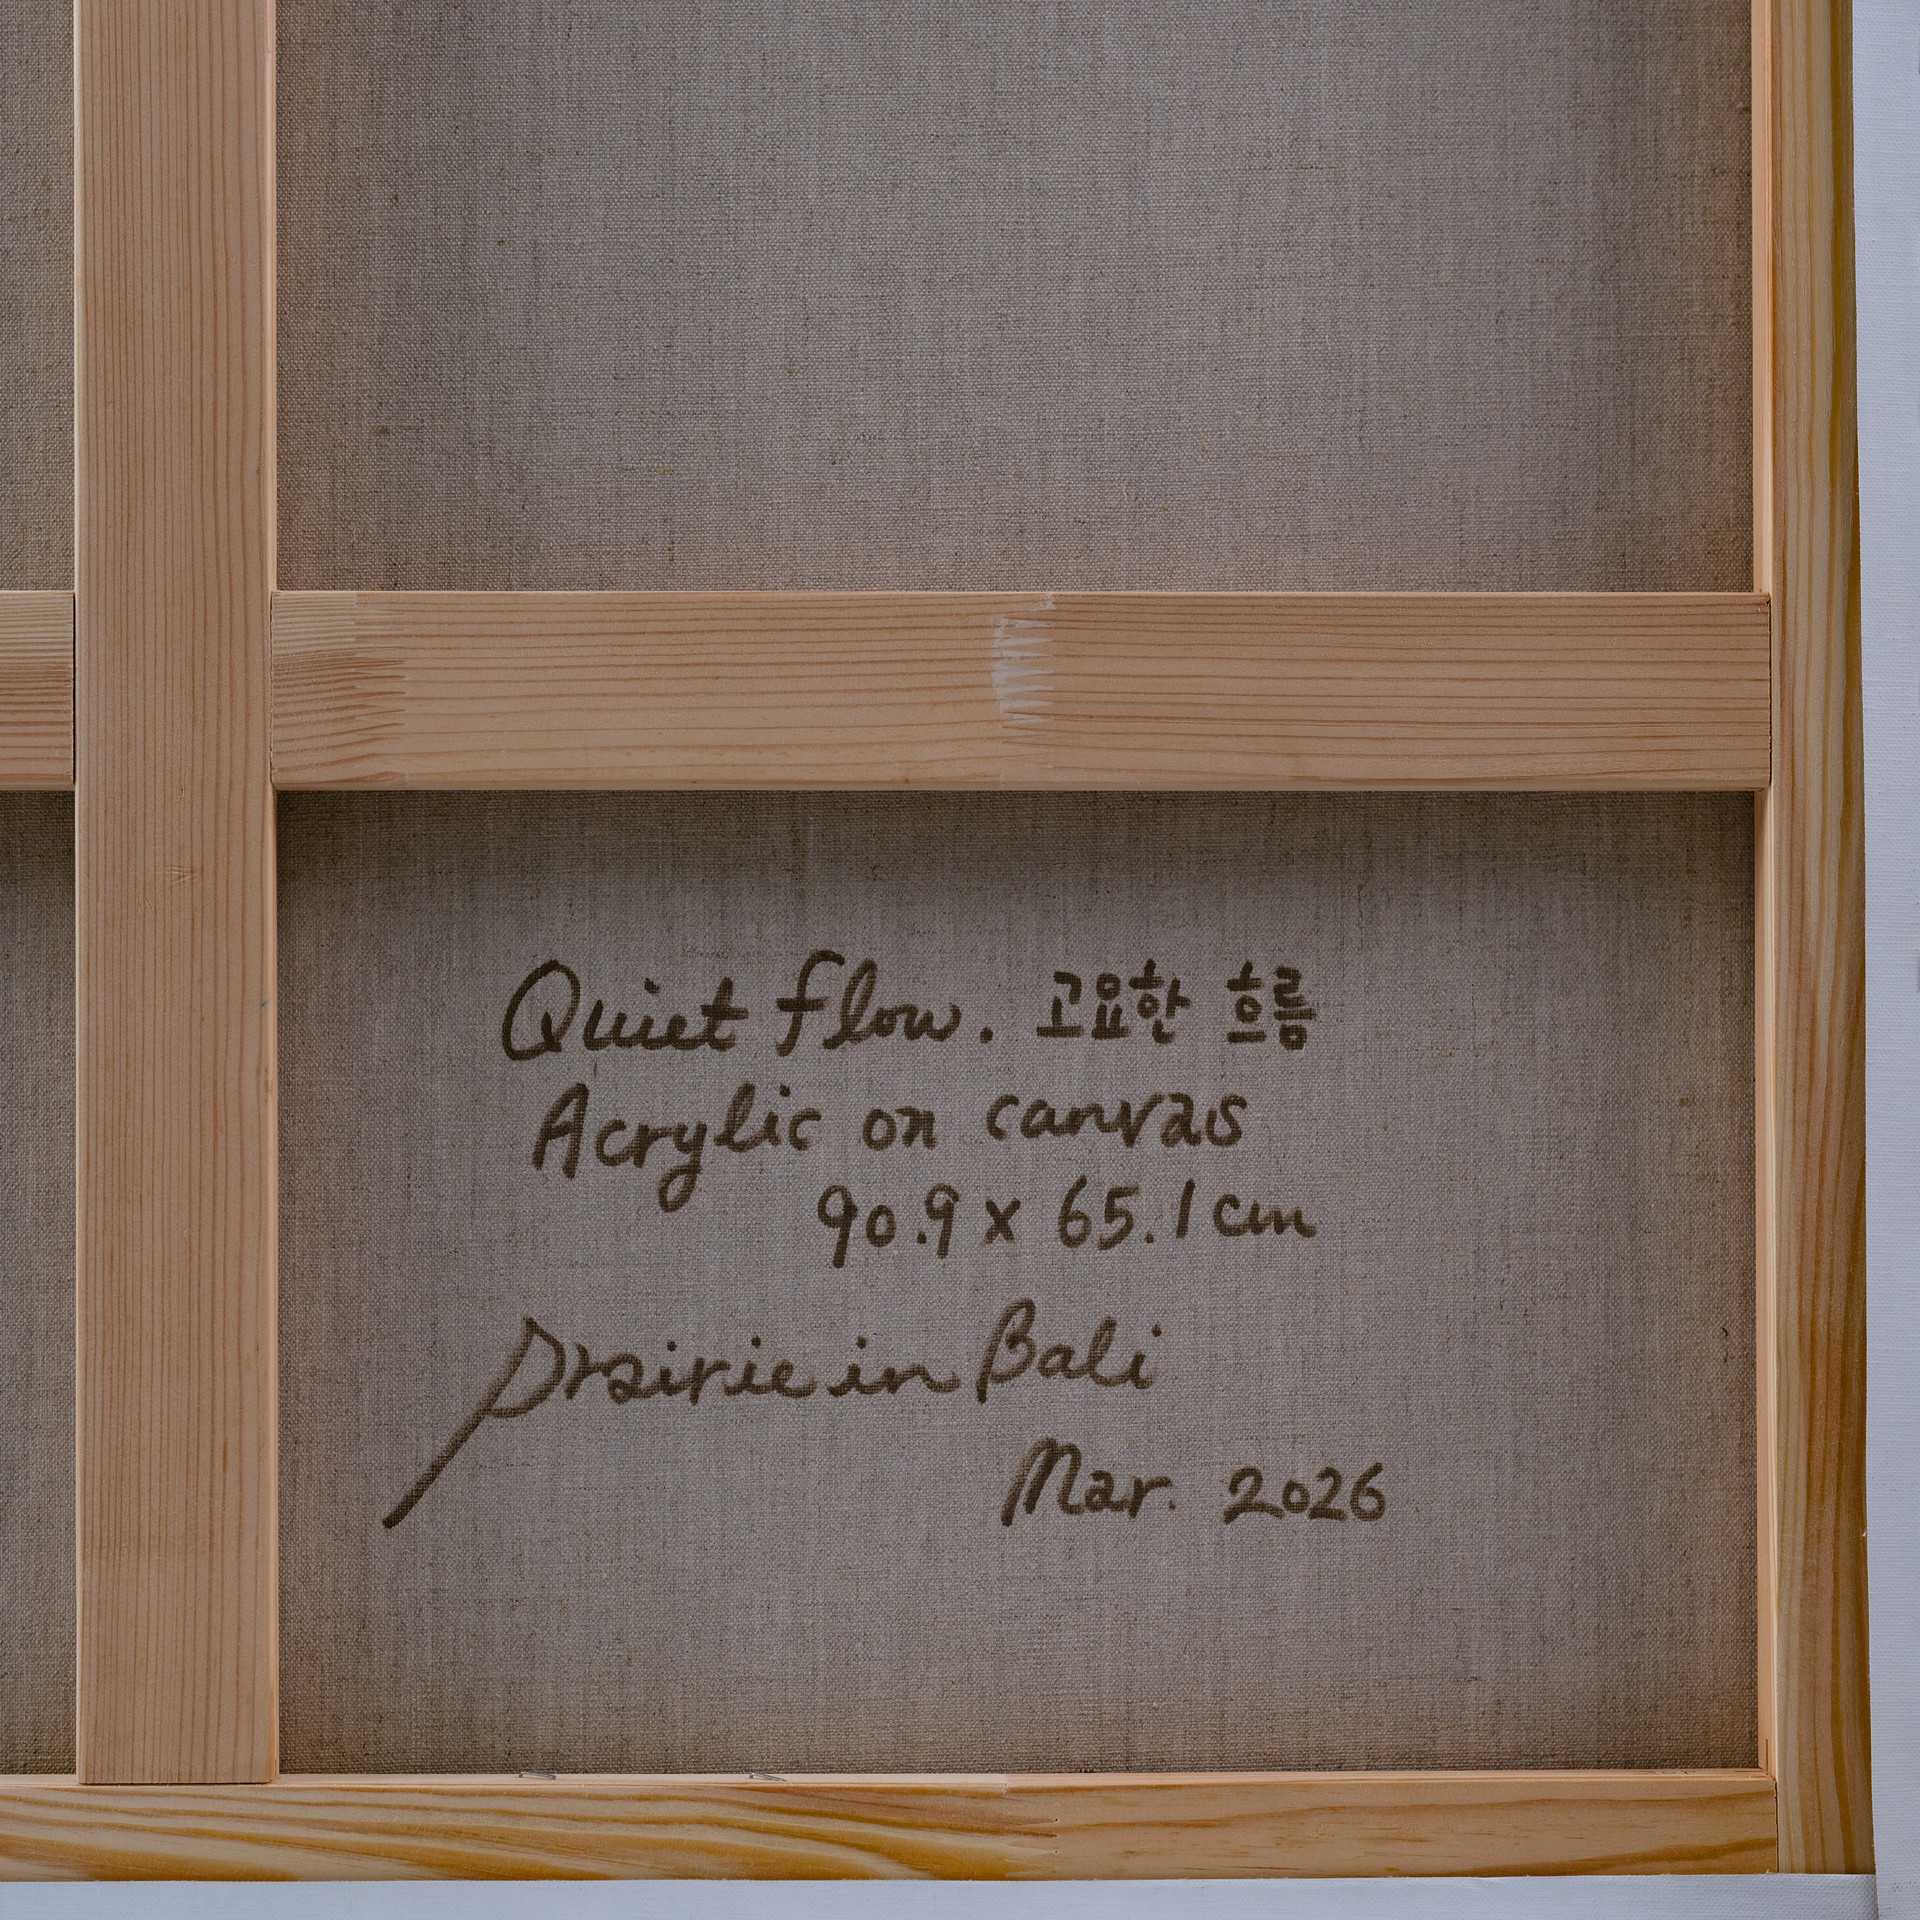 Quiet flow. 고요한 흐름
Acrylic on canvas
90.9 x 65.1 cm
Prairie in Bali
Mar. 2026